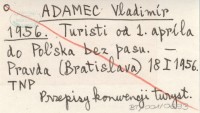 ADAMEC Vladimír
1956. Turisti od 1. apríla
do Poľska bez pasu. –
Pravda (Bratislava) 18 I 1956.
TNP
Przepisy konwencji turyst.